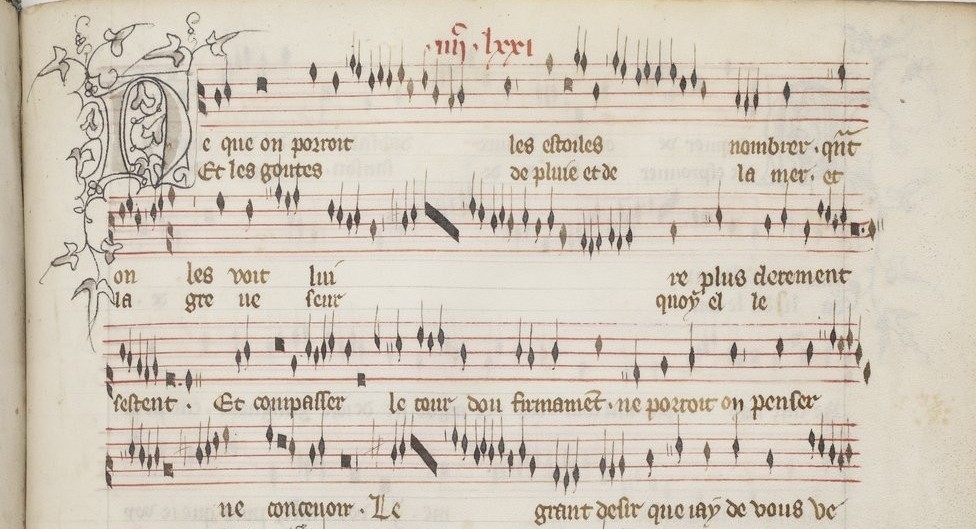 .iiij. lxxi
De que on porroit les estoiles nombrer. qñt
Et les goutes de pluie et de la mer. et
on les voit lui re plus clerement
la gre ue seur quoy el le si
sestent. Et compasser le tour dou firmament. ne porroit on penser
ne conceuoir. Le grant desir que iay de vous ve